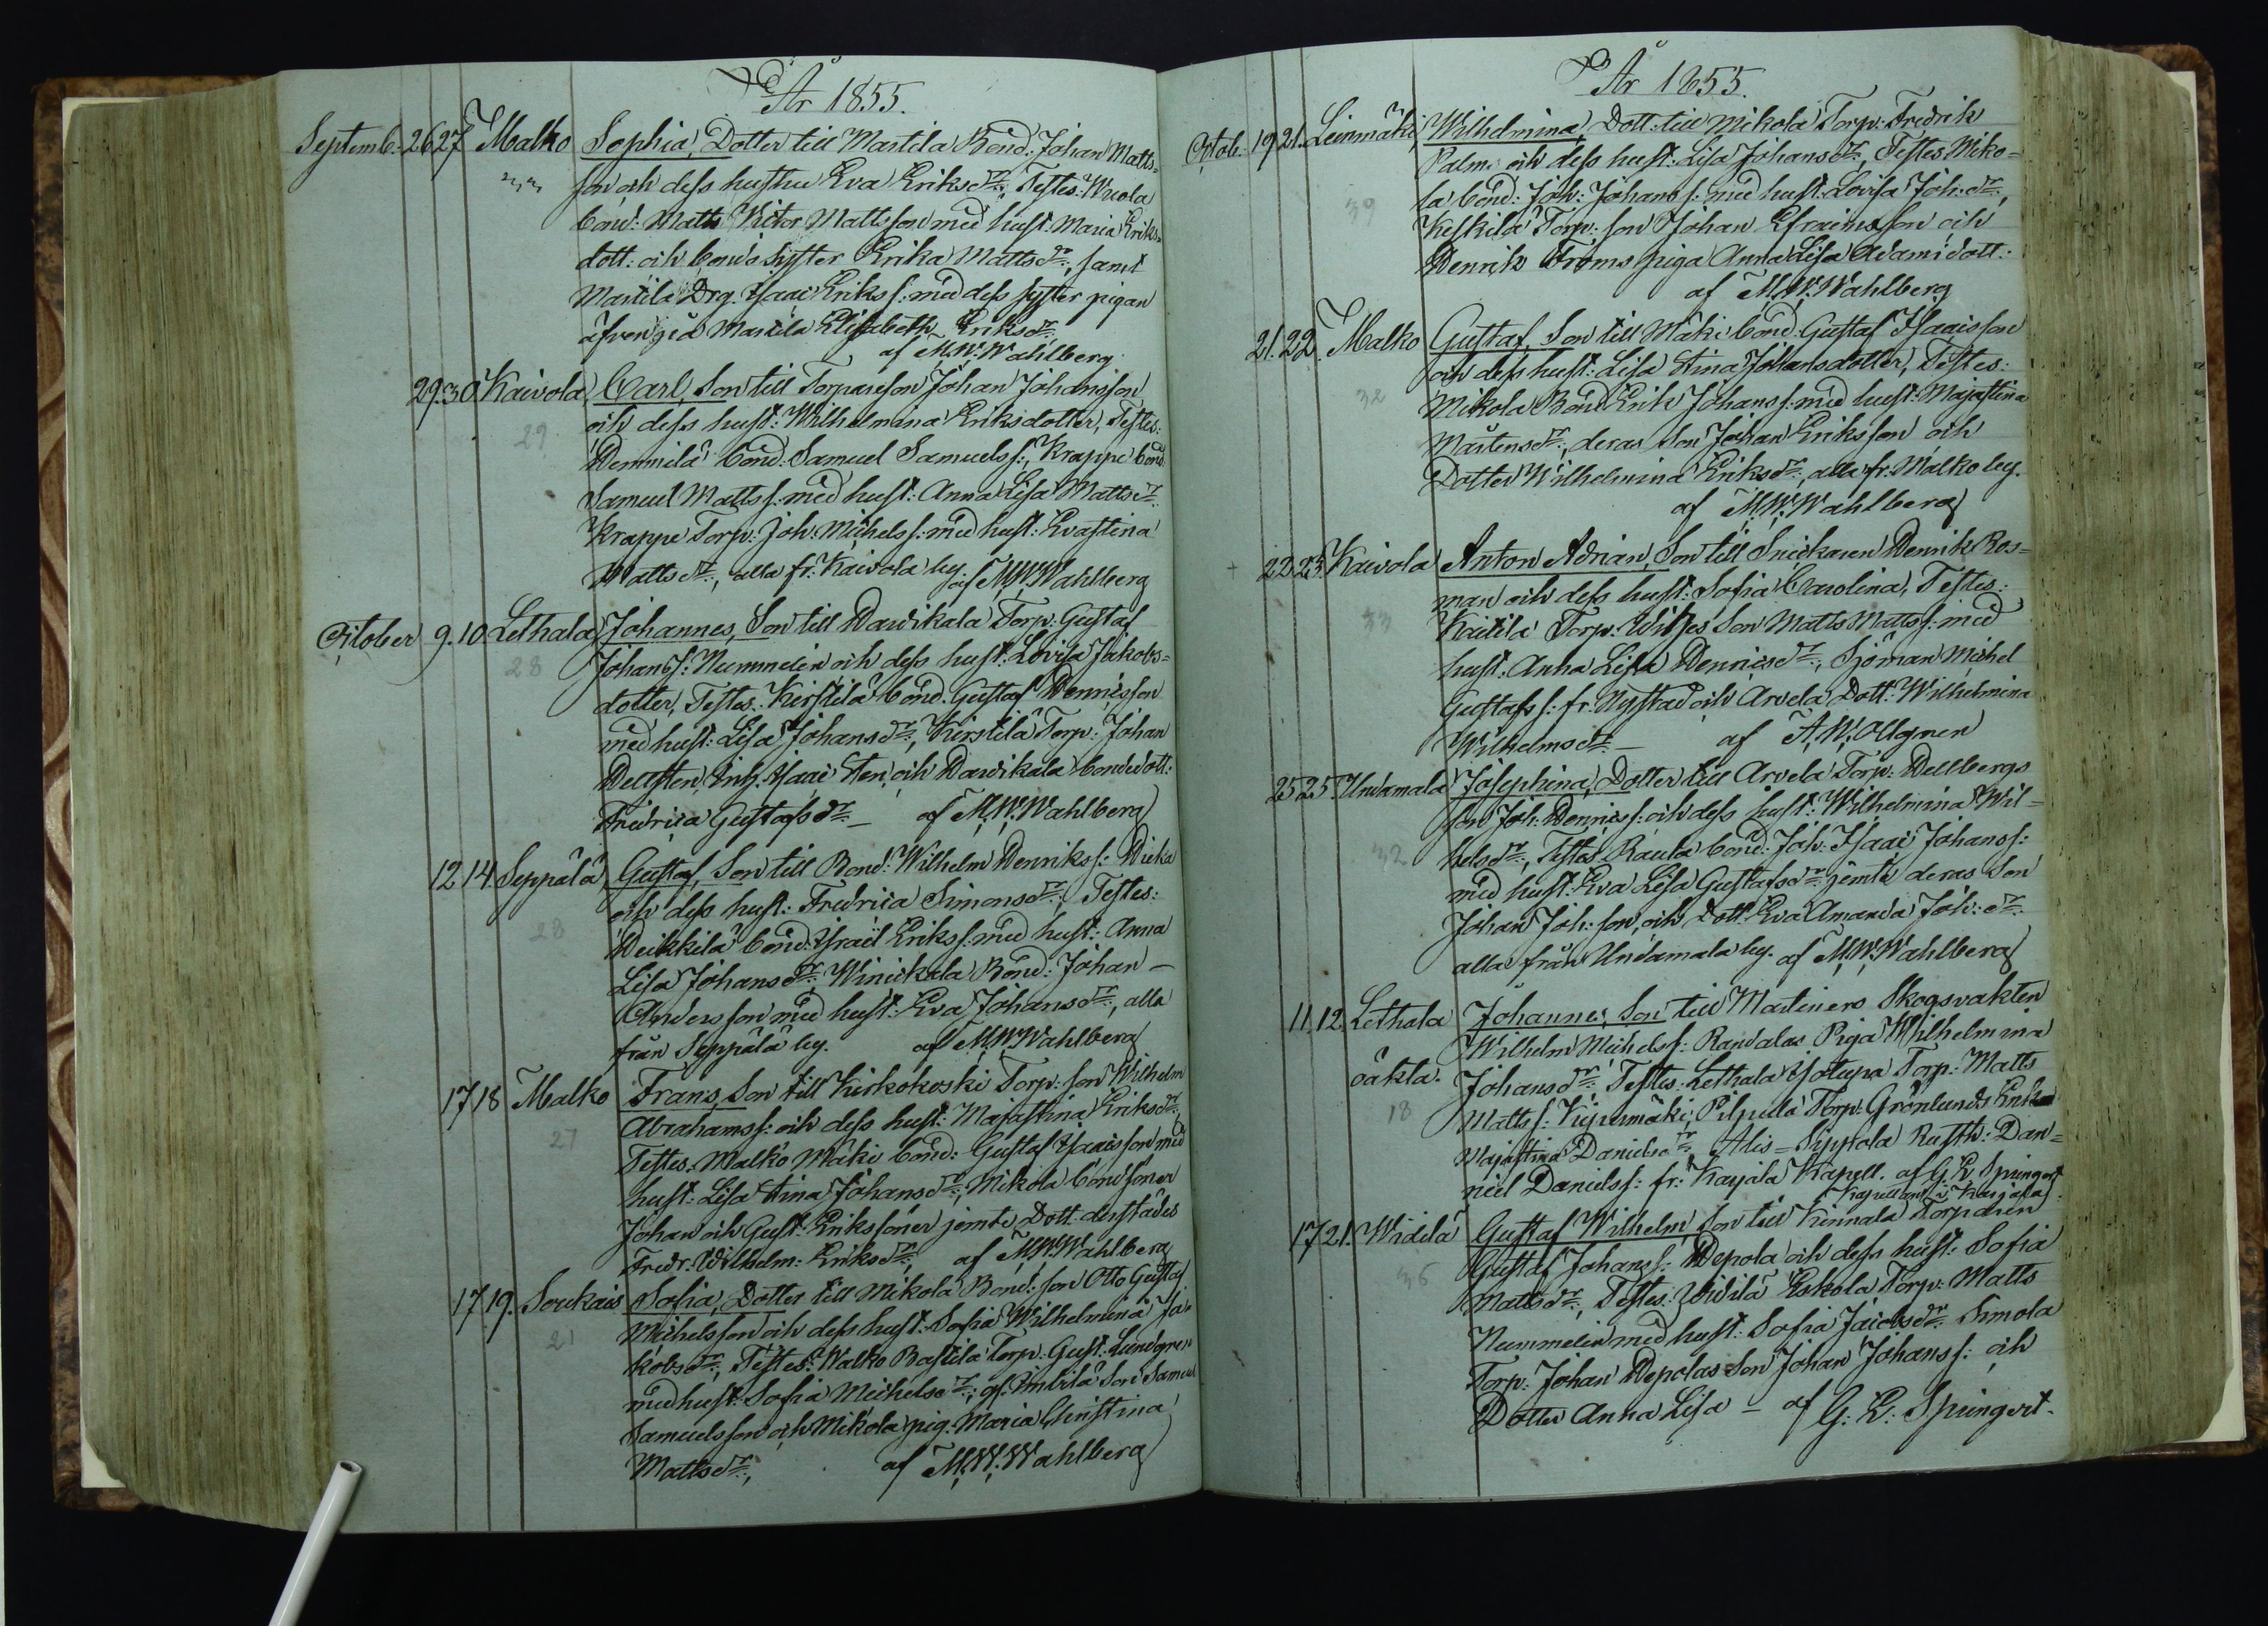 År 1855.
Septemb: 26 27 Malko Sophia, Dotter till Martila Bond: Johan Matts=
son och dess hustru Eva Eriksdr:, Testes: Wuola
bond: Matts Victor Mattsson med hust: Maria Eriks=
dott: och bonds syster Erika Mattsdr:, samt
Martila Drg. Isaac Eriks s: med dess syster pigan
äfven på Martila Elisabeth Eriksdr:
af M.W.Wahlberg
29. 30 Kaivola, Carl, Son till Torpareson Johan Johansson
29 och dess hust: Wilhelmina Eriksdotter, Testes:
Hemmilä bond: Samuel Samuels s:, Krappe bond
Samuel Matts s: med hust: Anna Lisa Mattsdr:
Krappe Torp: Joh: Michels s: med hust: Evastina
Mattsdr:, alla fr: Kaivola by. af M.W.Wahlberg
October 9. 10. Lethala, Johannes, Son till Haudikala Torp: Gustaf
28 Johans s: Nummelin och dess hust: Lovisa Jakobs=
dotter, Testes: Kirstilä bond. Gustaf Henricsson
med hust: Lisa Johansdr:, Kirstilä Torp: Johan
Hellsten, Isaac Sten, och Haudikala bondedott:
Fredrica Gustafsdr: — af M.W.Wahlberg
12. 14. Seppälä, Gustaf, Son till Bond: Wilhelm Henriks s: Dicka
28 och dess hust: Fredrica Simonsdr:, Testes:
Heikkilä bond: Israël Eriks s: med hust: Anna
Lisa Johansdr:, Winickala Bond: Johan —
Andersson med hust: Eva Johansdr:, alla
från Seppälä by. af M.W.Wahlberg
17 18 Malko Frans, Son till Kirkokoski Torp: son Wilhelm
27 Abrahams s: och dess hust: Majastina Eriksdr:,
Testes. Malko Mäki bond: Gustaf Isaacsson med
hust: Lisa Stina Johansdr:, Mikola bondsöner
Johan och Gust: Erikssöner jemte Dott: derstädes
Fredr. Wilhelm: Eriksdr:, af M.W.Wahlberg
17 19. Soukais Sofia, Dotter till Mikola Bond: son Otto Gustaf
21 Michelsson och dess hust: Sofia Wilhelmina Ja=
kobsdr:, Testes: Walko Rastila Torp: Gust: Lundgren
med hust: Sofia Michelsdr:, Son Samuel
Samuelsson och Mikola pig: Maria Christina
Mattsdr:, af M.W.Wahlberg
År 1855.
Octob. 19 21. Leinmäki, Wilhelmina, Dott: till Mikola Torp: Fredrik
Palm: och dess hust: Lisa Johansdr:, Testes Miko=
39 la bond: Joh: Johans s: med hust: Lovisa Joh:dr:,
Keskilä Torp: son Johan Efraimsson och
Henrik Froms piga Anna Lisa Adamsdott:
af M.W.Wahlberg
21. 22. Malko Gustaf, Son till Mäki bond: Gustaf Isaacsson
och dess hust: Lisa Stina Johansdotter, Testes:
32 Mikola Bond Erik Johans s: med hust: Majastina
Mårtensdr:, deras son Johan Eriksson och
Dotter Wilhelmina Eriksdr:, alla fr: Malko by.
af M.W.Wahlberg
+ 22 23. Kaivola Anton Adrian, Son till Snickaren Henrik Ros=
man och dess hust: Sofia Carolina, Testes:
33 Kaitila Torp: Wihes Son Matts Matts s: med
hust: Anna Lisa Henricsdr:, Sjöman Michel
Gustafs s: fr: Nystad och Arvela Dott: Wilhelmina
Wilhelmsdr: — af A.W.Allgren
25 25. Undamala Josephina, Dotter till Arvela Torp: Hellbergs
son Joh: Henrics s: och dess hust: Wilhelmina Wil=
32 helsdr:, Testes Raula bond: Joh: Isaac Johans s:
med hust: Eva Lisa Gustafsdr: jemte deras Son
Johan Joh: son, och Dott: Eva Amanda Joh: dr:
alla från Undamala by. af M.W.Wahlberg
11. 12. Lethala Johannes, Son till Martiners Skogsvakten
Wilhelm Michels s: Randalas Piga Wilhelmina
oäkta. Johansdr:, Testes: Lethala Torp: Matts
18 Matts s: Kypenmäki, Pilpula Torp: Grönlunds Enka
Majastina Danielsdr:, Alis=Sippola Rusth: Dan=
niel Daniels s: fr: Karjala Kapell. af G. E. Springert
Kapellan i Karjala.
17 21. Widilä Gustaf Wilhelm, Son till Kinnala Torparen
36 Gustaf Johans s: Hepola och dess hust: Sofia
Mattsdr:, Testes: Widilä Eskola Torp: Matts
Nummelin med hust: Sofia Jacobsdr: Simola
Torp: Johan Hepolas Son Johan Johans s: och
Dotter Anna Lisa — af G. E. Springert.